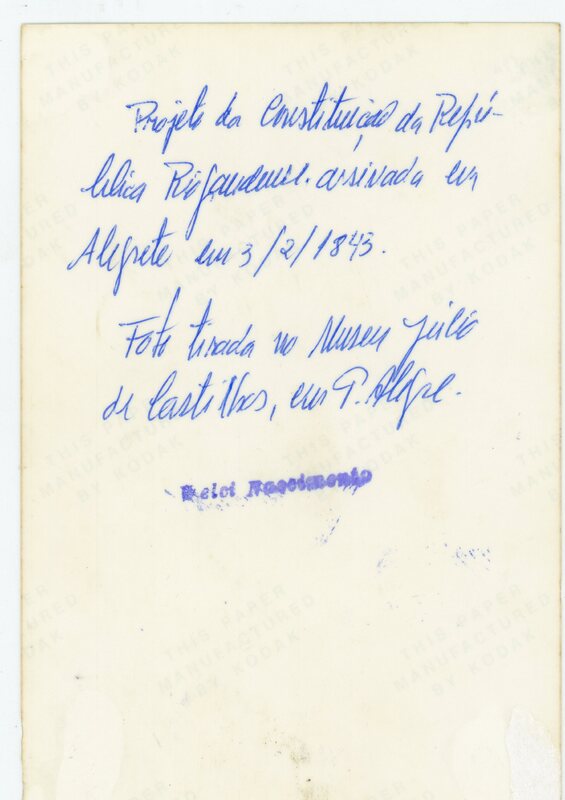 THIS PAPER
MANUFACTURED
BY KODAK
Projeto da Constituição da Repú-
blica Riograndense. assinada em
Alegrete em 3/2/1843.
Foto tirada no Museu Júlio
de Castilhos, em P. Alegre.
Nascimento
THIS PAPER
MANUFACTURED
BY KODAK